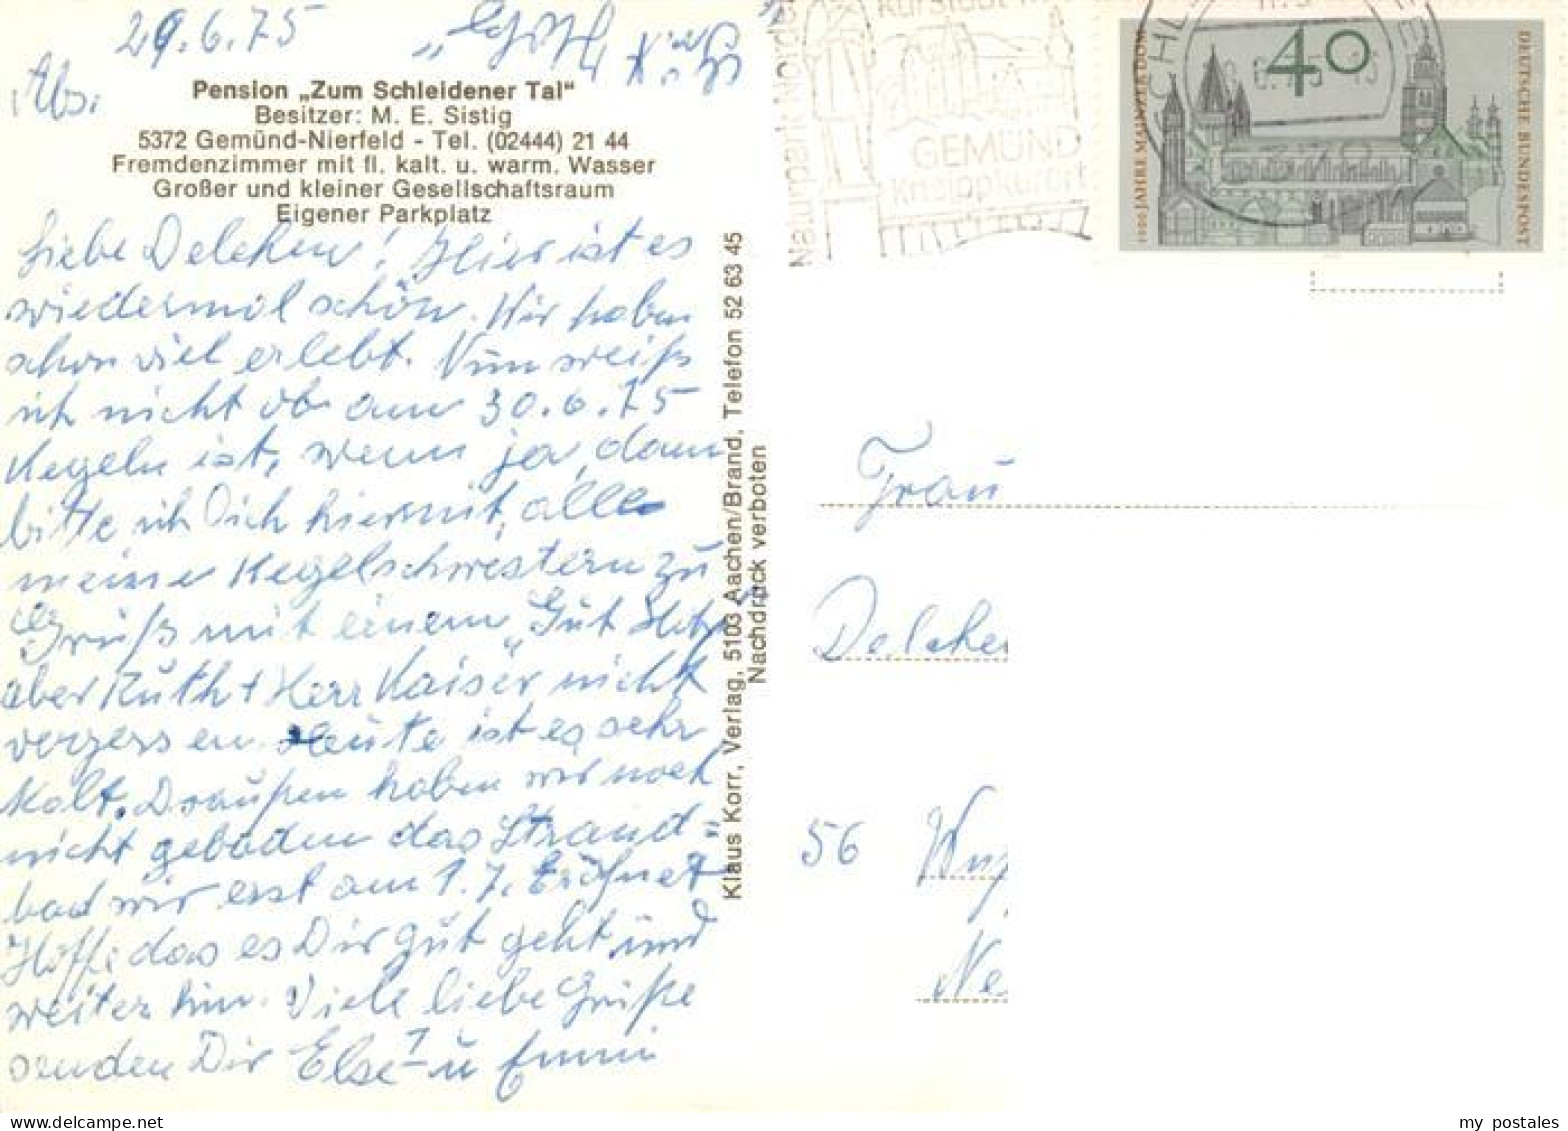 29.6.75
Abs.
Pension „Zum Schleidener Tal“
Besitzer: M. E. Sistig
5372 Gemünd-Nierfeld - Tel. (02444) 21 44
Fremdenzimmer mit fl. kalt. u. warm. Wasser
Großer und kleiner Gesellschaftsraum
Eigener Parkplatz
Liebe Delchen! Hier ist es
wiedermal schön. Wir haben
schon viel erlebt. Nun weiß
ich nicht ob am 30.6.75
Kegeln ist, wenn ja, dann
bitte ich Dich hiermit, alle
meine Kegelschwestern zu
Grüß mit einem „Gut Holz
aber Ruth + Herr Kaiser nicht
vergessen. Heute ist es sehr
kalt. Draußen haben wir noch
nicht gebaden das Strand=
bad wir erst am 1.7. Eröfnet
Hoffe das es Dir gut geht und
weiter hin. Viele liebe Grüße
senden Dir Else u Emmi
Klaus Korr, Verlag, 5103 Aachen/Brand, Telefon 52 63 45
Nachdruck verboten
Naturpark Norde
Kurstadt
GEMÜND
Kneippkurort
SCHL
5370
40
1000 JAHRE MAINZER DOM
DEUTSCHE BUNDESPOST
Frau
Delchen
56 Wup
Ne
my postales